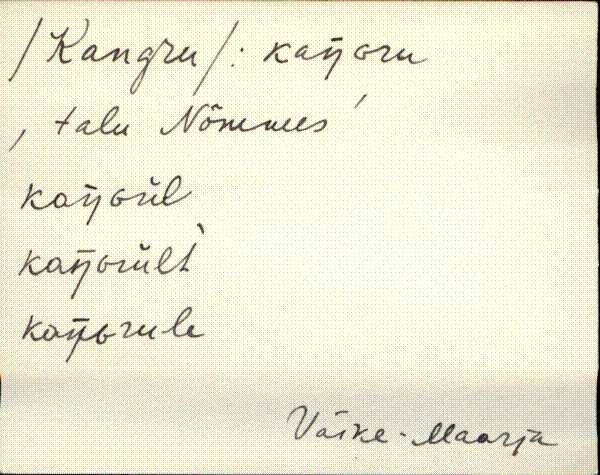 /Kangru/: kaŋɢru
, talu Nõmmes'
kaŋɢrŭl
kaŋɢrŭlt̀
kaŋɢrule
Väike-Maarja